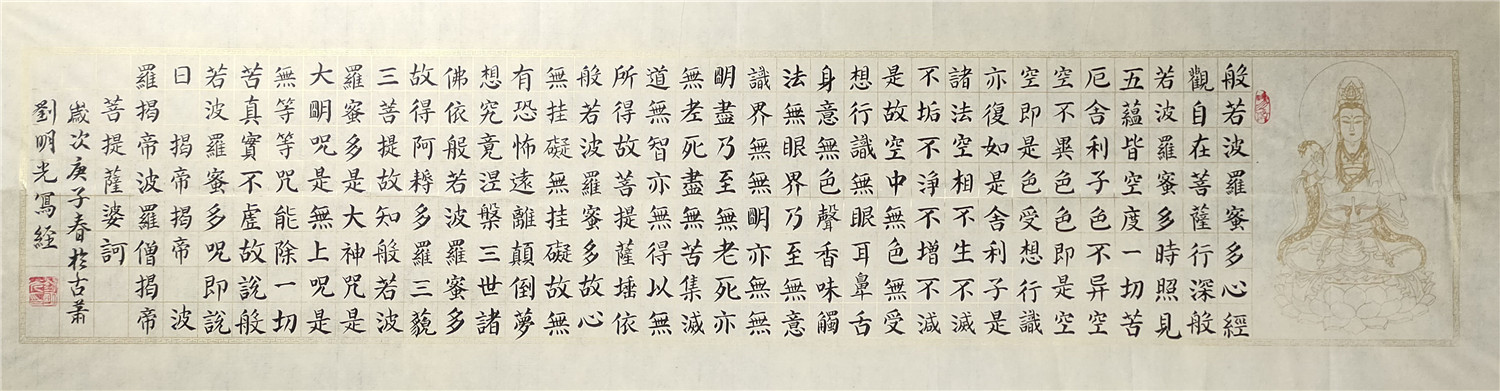 般若波羅蜜多心經
觀自在菩薩行深般
若波羅蜜多時照見
五蘊皆空度一切苦
厄舍利子色不异空
空不異色色即是空
空即是色受想行識
亦復如是舍利子是
諸法空相不生不滅
不垢不淨不增不減
是故空中無色無受
想行識無眼耳鼻舌
身意無色聲香味觸
法無眼界乃至無意
識界無無明亦無無
明盡乃至無老死亦
無老死盡無苦集滅
道無智亦無得以無
所得故菩提薩埵依
般若波羅蜜多故心
無挂礙無挂礙故無
有恐怖遠離顛倒夢
想究竟涅槃三世諸
佛依般若波羅蜜多
故得阿耨多羅三藐
三菩提故知般若波
羅蜜多是大神咒是
大明呪是無上呪是
無等等咒能除一切
苦真實不虛故說般
若波羅蜜多呪即說
曰 揭帝揭帝 波
羅揭帝波羅僧揭帝
菩提薩婆訶
歲次庚子春於古蕭
劉明光寫經